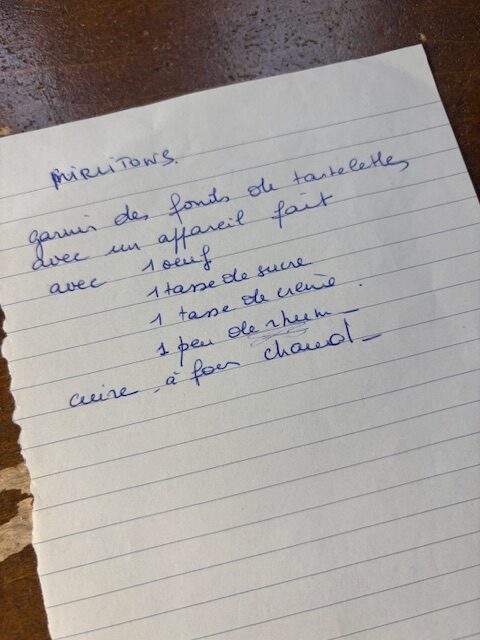 MIRLITONS.
garnir des fonds de tartelettes
avec un appareil fait
avec 1 oeuf
1 tasse de sucre
1 tasse de crème.
1 peu de rhum_
cuire à four chaud_